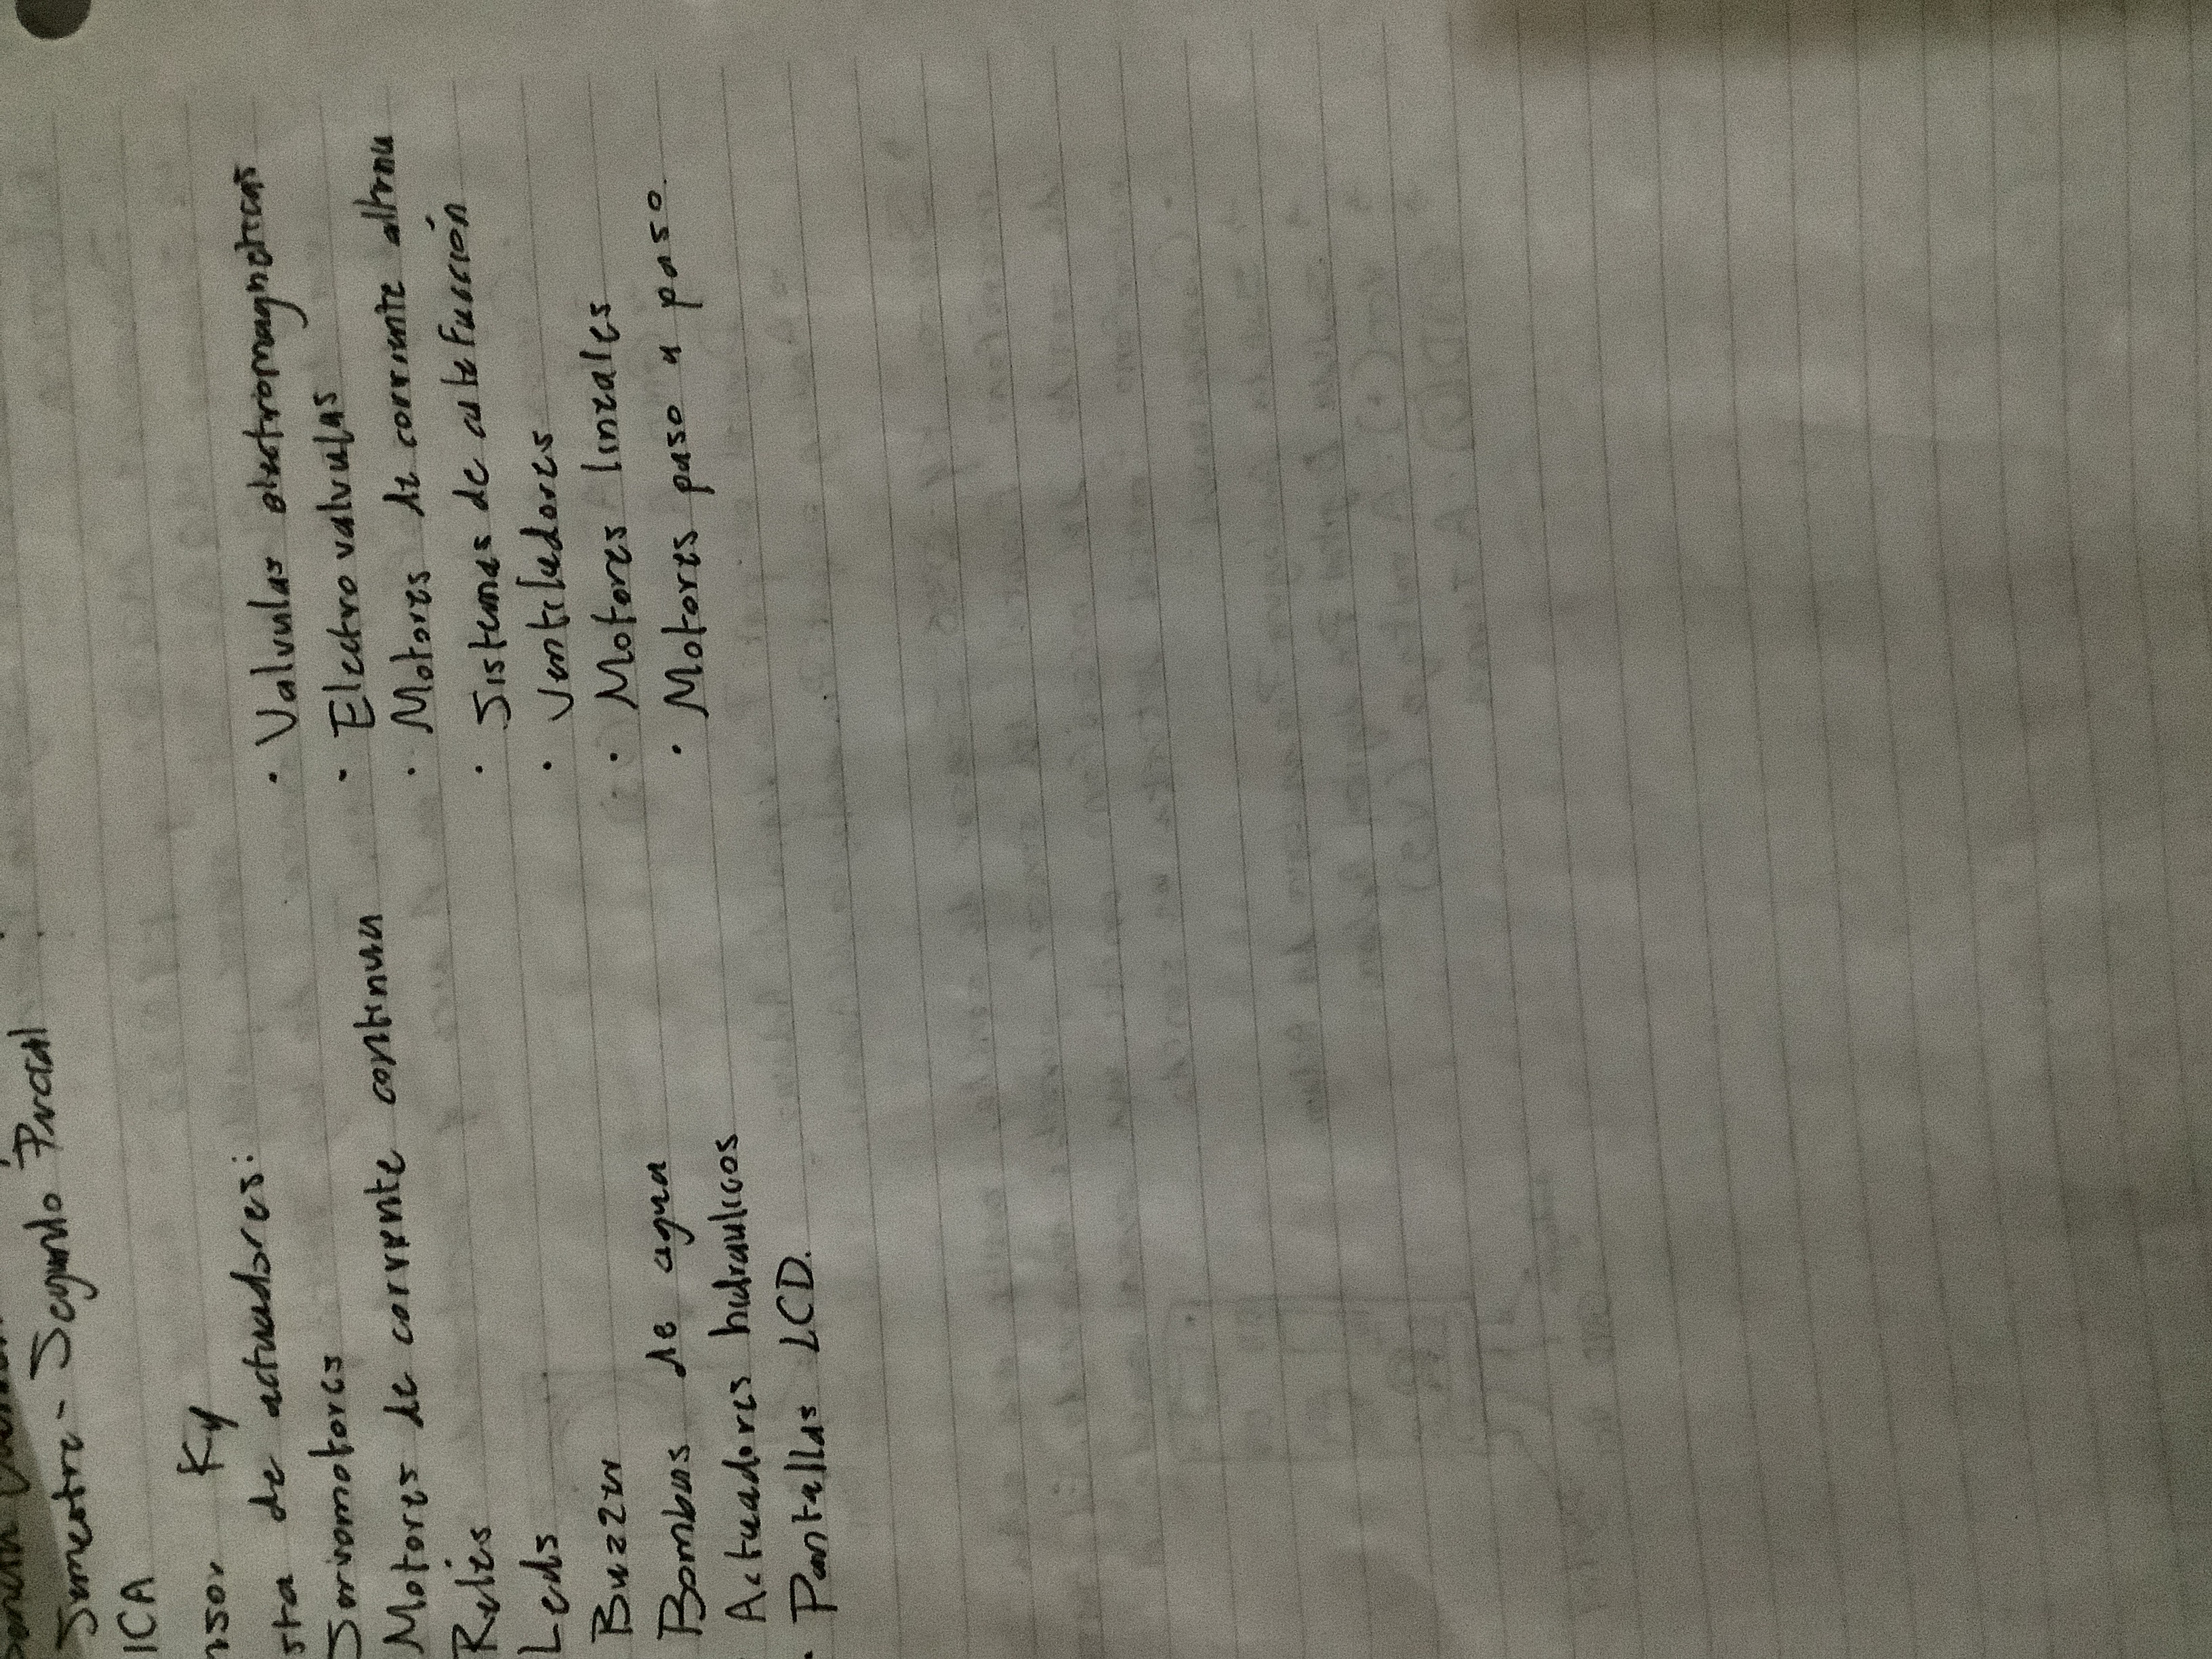 Semestre - Segundo Parcial
ICA
nsor Ky
sta de actuadores:
Servomotores
Motores de corriente continua
Relés
Leds
Buzzer
Bombas de agua
Actuadores hidraulicos
• Pantallas LCD.
• Valvulas electromagneticas
• Electrovalvulas
• Motores de corriente alterna
• Sistemas de calefacción
• Ventiladores
• Motores lineales
• Motores paso a paso.